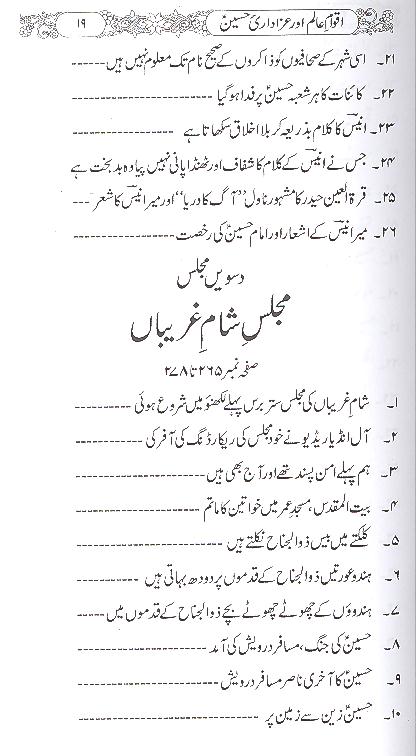 اقوامِ عالم اور عزاداریِ حسینؑ ۱۹
۲۱۔ اسی شہر کے صحافیوں کو ذاکروں کے صحیح نام تک معلوم نہیں ہیں -------
۲۲۔ کائنات کا ہر شعبہ حسینؑ پر فدا ہو گیا ------------------
۲۳۔ انیسؔ کا کلام بذریعہ کربلا اخلاق سکھاتا ہے --------------
۲۴۔ جس نے انیسؔ کے کلام کا شفاف اور ٹھنڈا پانی نہیں پیا وہ بدبخت ہے
۲۵۔ قرۃ العین حیدر کا مشہور ناول ’’آگ کا دریا‘‘ اور میر انیسؔ کا شعر ---
۲۶۔ میر انیسؔ کے اشعار اور امام حسینؑ کی رخصت ---------------
دسویں مجلس
مجلسِ شامِ غریباں
صفحہ نمبر ۲۶۵ تا ۲۷۸
۱۔ شامِ غریباں کی مجلس ستر برس پہلے لکھنؤ میں شروع ہوئی ----------
۲۔ آل انڈیا ریڈیو نے خود مجلس کی ریکارڈنگ کی آفر کی -----------
۳۔ ہم پہلے امن پسند تھے اور آج بھی ہیں ------------------
۴۔ بیت المقدس، مسجدِ عمر میں خواتین کا ماتم -----------------
۵۔ کلکتے میں بیس ذوالجناح نکلتے ہیں --------------------
۶۔ ہندو عورتیں ذوالجناح کے قدموں پر دودھ بہاتی ہیں -----------
۷۔ ہندوؤں کے چھوٹے چھوٹے بچے ذوالجناح کے قدموں میں -------
۸۔ حسینؑ کی جنگ، مسافر درویش کی آمد ------------------
۹۔ حسینؑ کا آخری ناصر مسافر درویش -------------------
۱۰۔ حسینؑ زین سے زمین پر -----------------------